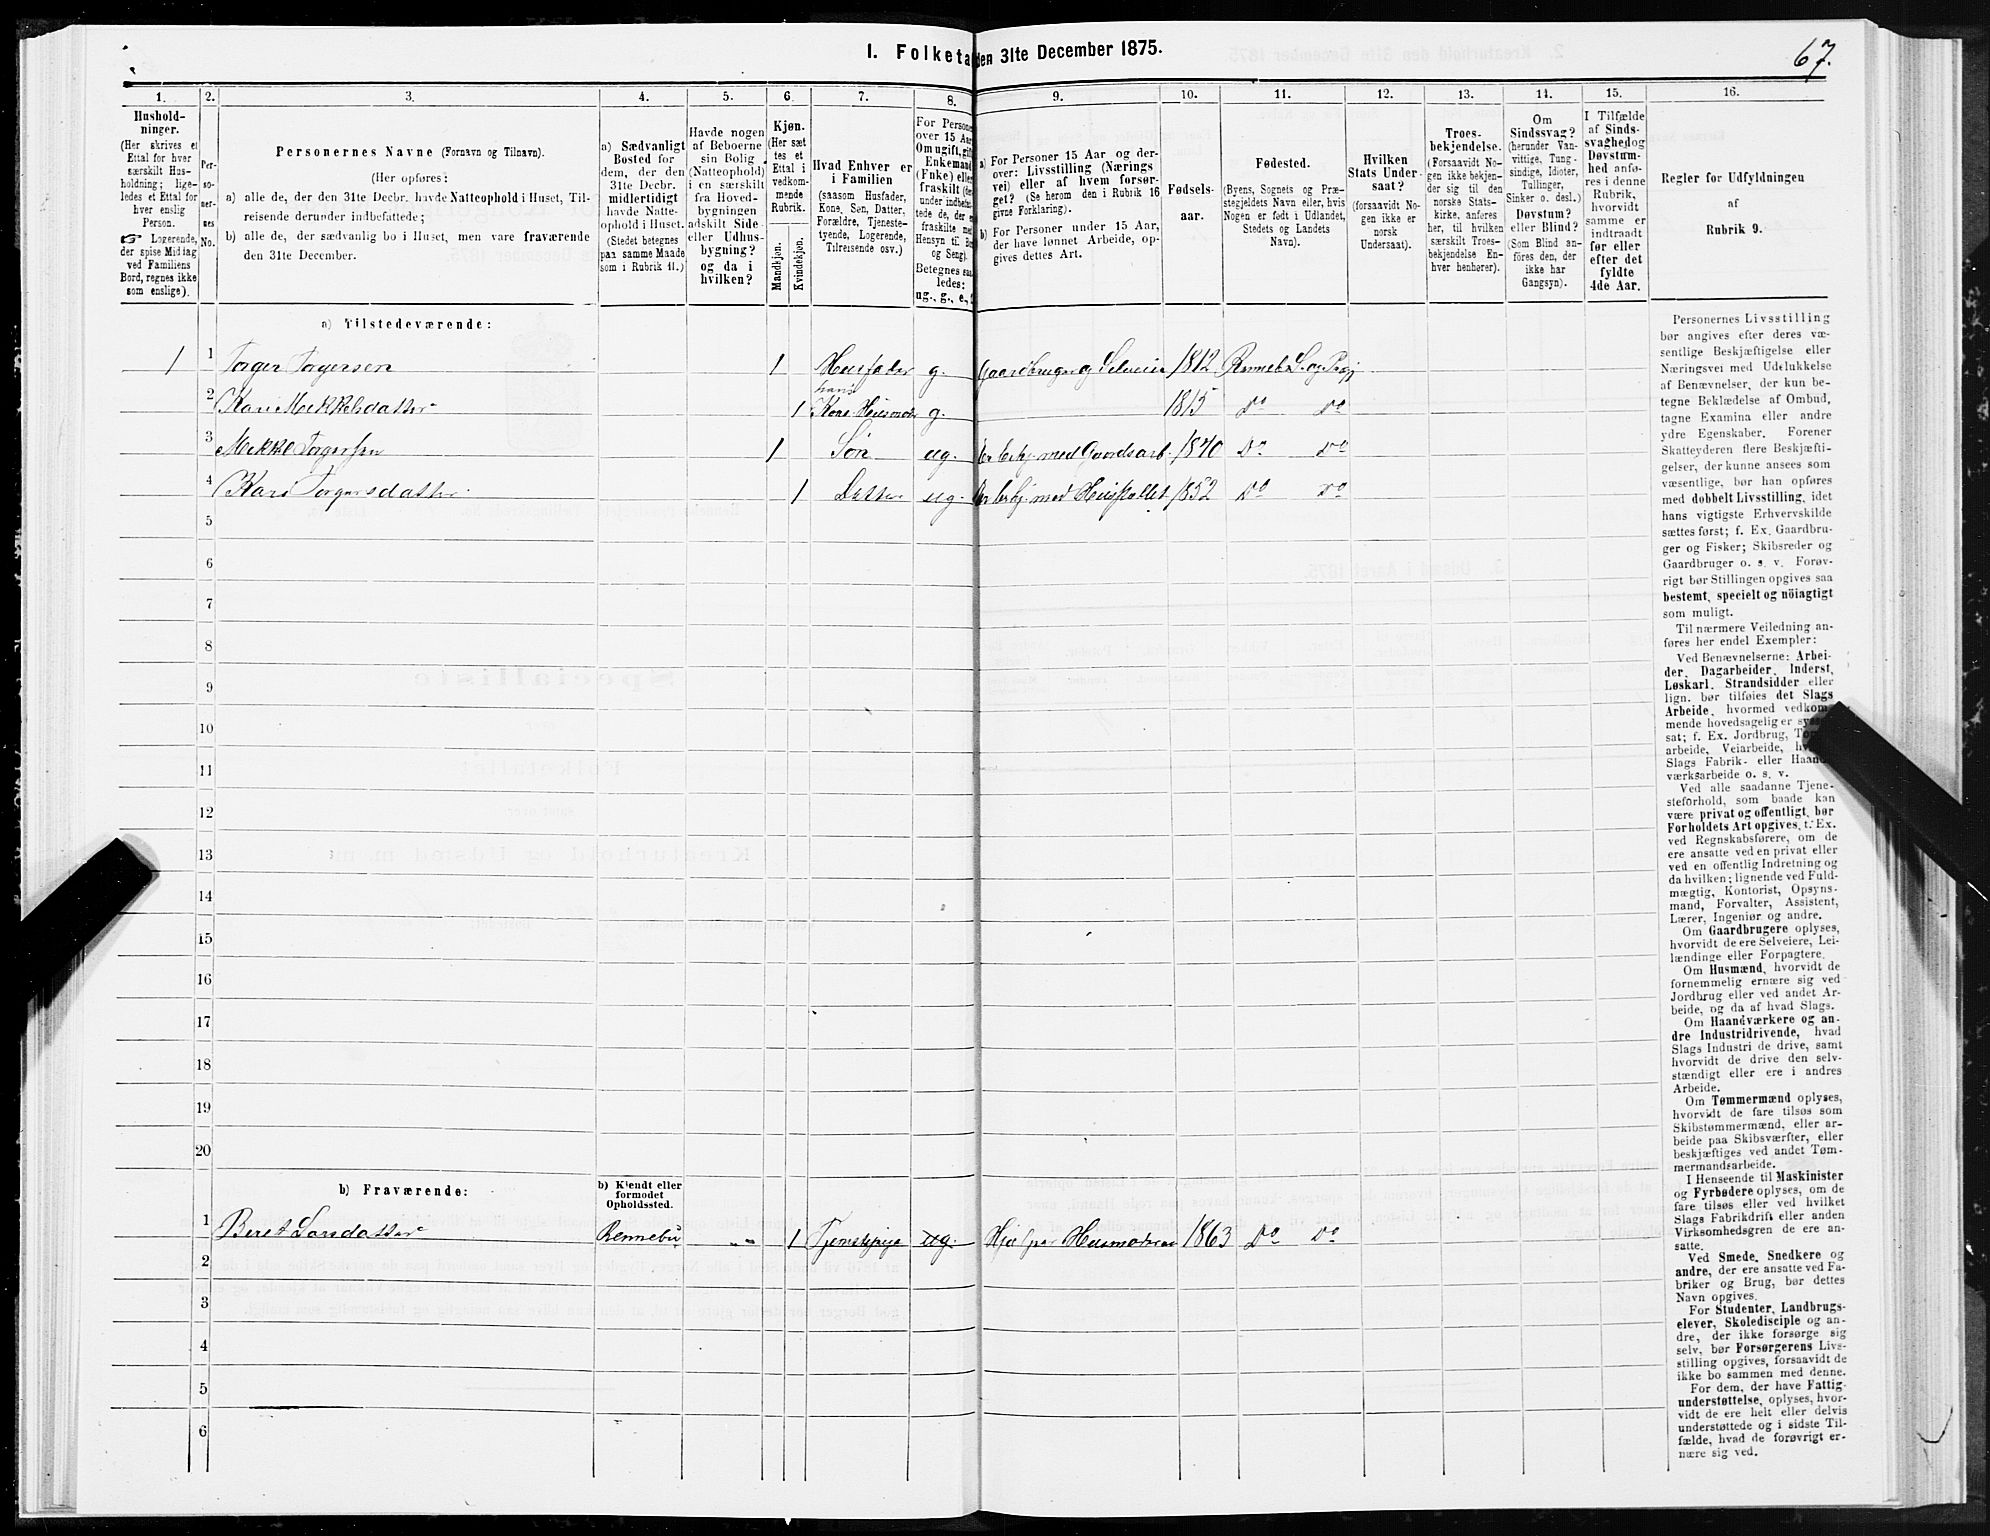 I. Folketa den 31te December 1875.
67.
1. 2. 3. 4. 5. 6. 7. 8. 9. 10. 11. 12. 13. 14. 15. 16.
Hushold-
ninger.
(Her skrives et
Ettal for hver
særskilt Hus-
holdning; lige-
ledes et Ettal for
hver enslig
Person.
☞ Logerende,
der spise Middag
ved Familiens
Bord, regnes ikke
som enslige).
Per-
so-
ner-
nes
No.
Personernes Navne (Fornavn og Tilnavn).
(Her opføres:
a) alle de, der den 31te Decbr. havde Natteophold i Huset, Til-
reisende derunder indbefattede;
b) alle de, der sædvanlig bo i Huset, men vare fraværende
den 31te December.
a) Sædvanligt
Bosted for
dem, der den
31te Decbr.
midlertidigt
havde Natte-
ophold i Huset.
(Stedet betegnes
paa samme Maade
som i Rubrik 11.)
Havde nogen
af Beboerne
sin Bolig
(Natteophold)
i en særskilt
fra Hoved-
bygningen
adskilt Side-
eller Udhus-
bygning?
og da i
hvilken?
Kjøn.
(Her sæt
tes et
Ettal i
vedkom-
mende
Rubrik.
Mandkjøn.
Kvindekjøn.
Hvad Enhver er
i Familien
(saasom Husfader,
Kone, Søn, Datter,
Forældre, Tjeneste-
tyende, Logerende,
Tilreisende osv.)
For Persone
over 15 Aar
Om ugift, gift
Enkemand
(Enke) elle
fraskilt (de
under indbefa
tede de, der e
fraskilte me
Hensyn til Bo
og Seng).
Betegnes saa
ledes:
ug., g., e.,
a) For Personer 15 Aar og der-
over: Livsstilling (Nærings
vei) eller af hvem forsør-
get? (Se herom den i Rubrik 16
givne Forklaring).
b) For Personer under 15 Aar,
der have lønnet Arbeide, op-
gives dettes Art.
Fødsels-
aar.
Fødested.
(Byens, Sognets og Præ-
stegjeldets Navn eller, hvis
Nogen er født i Udlandet,
Stedets og Landets
Navn).
Hvilken
Stats Under-
saat?
(forsaavidt No-
gen ikke er
norsk
Undersaat).
Troes-
bekjendelse.
(Forsaavidt No-
gen ikke bekjen-
der sig til den
norske Stats-
kirke, anføres
her, til hvilken
særskilt Troes-
bekjendelse En-
hver henhører).
Om
Sindssvag?
(herunder Van-
vittige, Tung-
sindige, Idioter,
Tullinger,
Sinker o. desl.)
Døvstum?
eller Blind?
(Som Blind an-
föres den, der
ikke har
Gangsyn).
I Tilfælde
af Sinds-
svaghed og
Døvstum-
hed anfø-
res i denne
Rubrik,
hvorvidt
samme er
indtraadt
før eller
efter det
fyldte
4de Aar.
Regler for Udfyldningen
af
Rubrik 9.
a) Tilstedeværende:
1 1 Torger Torgersen 1 Husfader g. Gaardbruger og Selveier 1812 Renneb. S. og Pgj
2 Kari Mekkelsdatter 1 hans Kone Husmoder g. 1815 Do Do
3 Mekkel Torgersen 1 Søn ug. er besk. med Gaardsarb. 1840 Do Do
4 Kari Torgersdatter 1 Datter ug. er besk. med Husstellet 1852 Do Do
5
6
7
8
9
10
11
12
13
14
15
16
17
18
19
20
b) Fraværende:
b) Kjendt eller
formodet
Opholdssted.
1 Beret Larsdatter Rennebu „ „ 1 Tjenestepige ug. Hjælper Husmoderen 1863 Do Do
2
3
4
5
6
Personernes Livsstilling
bør angives efter deres væ-
sentlige Beskjæftigelse eller
Næringsvei med Udelukkelse
af Benævnelser, der kun be-
tegne Beklædelse af Ombud,
tagne Examina eller andre
ydre Egenskaber. Forener
Skatteyderen flere Beskjæfti-
gelser, der kunne ansees som
væsentlige, bør han opføres
med dobbelt Livsstilling, idet
hans vigtigste Erhvervskilde
sættes først; f. Ex. Gaardbru-
ger og Fisker; Skibsreder og
Gaardbruger o. s. v. Forøv-
rigt bør Stillingen opgives saa
bestemt, specielt og nöiagtigt
som muligt.
Til nærmere Veiledning an-
føres her endel Exempler:
Ved Benævnelserne: Arbei-
der, Dagarbeider, Inderst,
Løskarl, Strandsidder eller
lign. bør tilføies det Slags
Arbeide, hvormed vedkom-
mende hovedsagelig er sys
sat; f. Ex. Jordbrug, Tøm
arbeide, Veiarbeide, hv
Slags Fabrik- eller Haand
værksarbeide o. s. v.
Ved alle saadanne Tjene-
steforhold, som baade kan
være privat og offentligt, bør
Forholdets Art opgives, t. Ex.
ved Regnskabsførere, om de
ere ansatte ved en privat eller
ved en offentlig Indretning og
da hvilken; lignende ved Fuld-
mægtig, Kontorist, Opsyns-
mand, Forvalter, Assistent,
Lærer, Ingeniør og andre.
Om Gaardbrugere oplyses,
hvorvidt de ere Selveiere, Lei-
lændinge eller Forpagtere.
Om Husmænd, hvorvidt de
fornemmelig ernære sig ved
Jordbrug eller ved andet Ar-
beide, og da af hvad Slags.
Om Haandværkere og an-
dre Industridrivende, hvad
Slags Industri de drive, samt
hvorvidt de drive den selv-
stændigt eller ere i andres
Arbeide.
Om Tømmermænd oplyses,
hvorvidt de fare tilsøs som
Skibstømmermænd, eller ar-
beide paa Skibsværfter, eller
beskjæftiges ved andet Tøm-
mermandsarbeide.
I Henseende til Maskinister
og Fyrbødere oplyses, om de
fare tilsøs eller ved hvilket
Slags Fabrikdrift eller anden
Virksomhedsgren de ere an-
satte.
Ved Smede, Snedkere og
andre, der ere ansatte ved Fa-
briker og Brug, bør dettes
Navn opgives.
For Studenter, Landbrugs-
elever, Skoledisciple og an-
dre, der ikke forsørge sig
selv, bør Forsørgerens Livs-
stilling opgives, forsaavidt de
ikke bo sammen med denne.
For dem, der have Fattig-
understøttelse, oplyses, hvor-
vidt de ere helt eller delvis
understøttede og i sidste Til-
fælde, hvad de forøvrigt er-
nære sig ved.